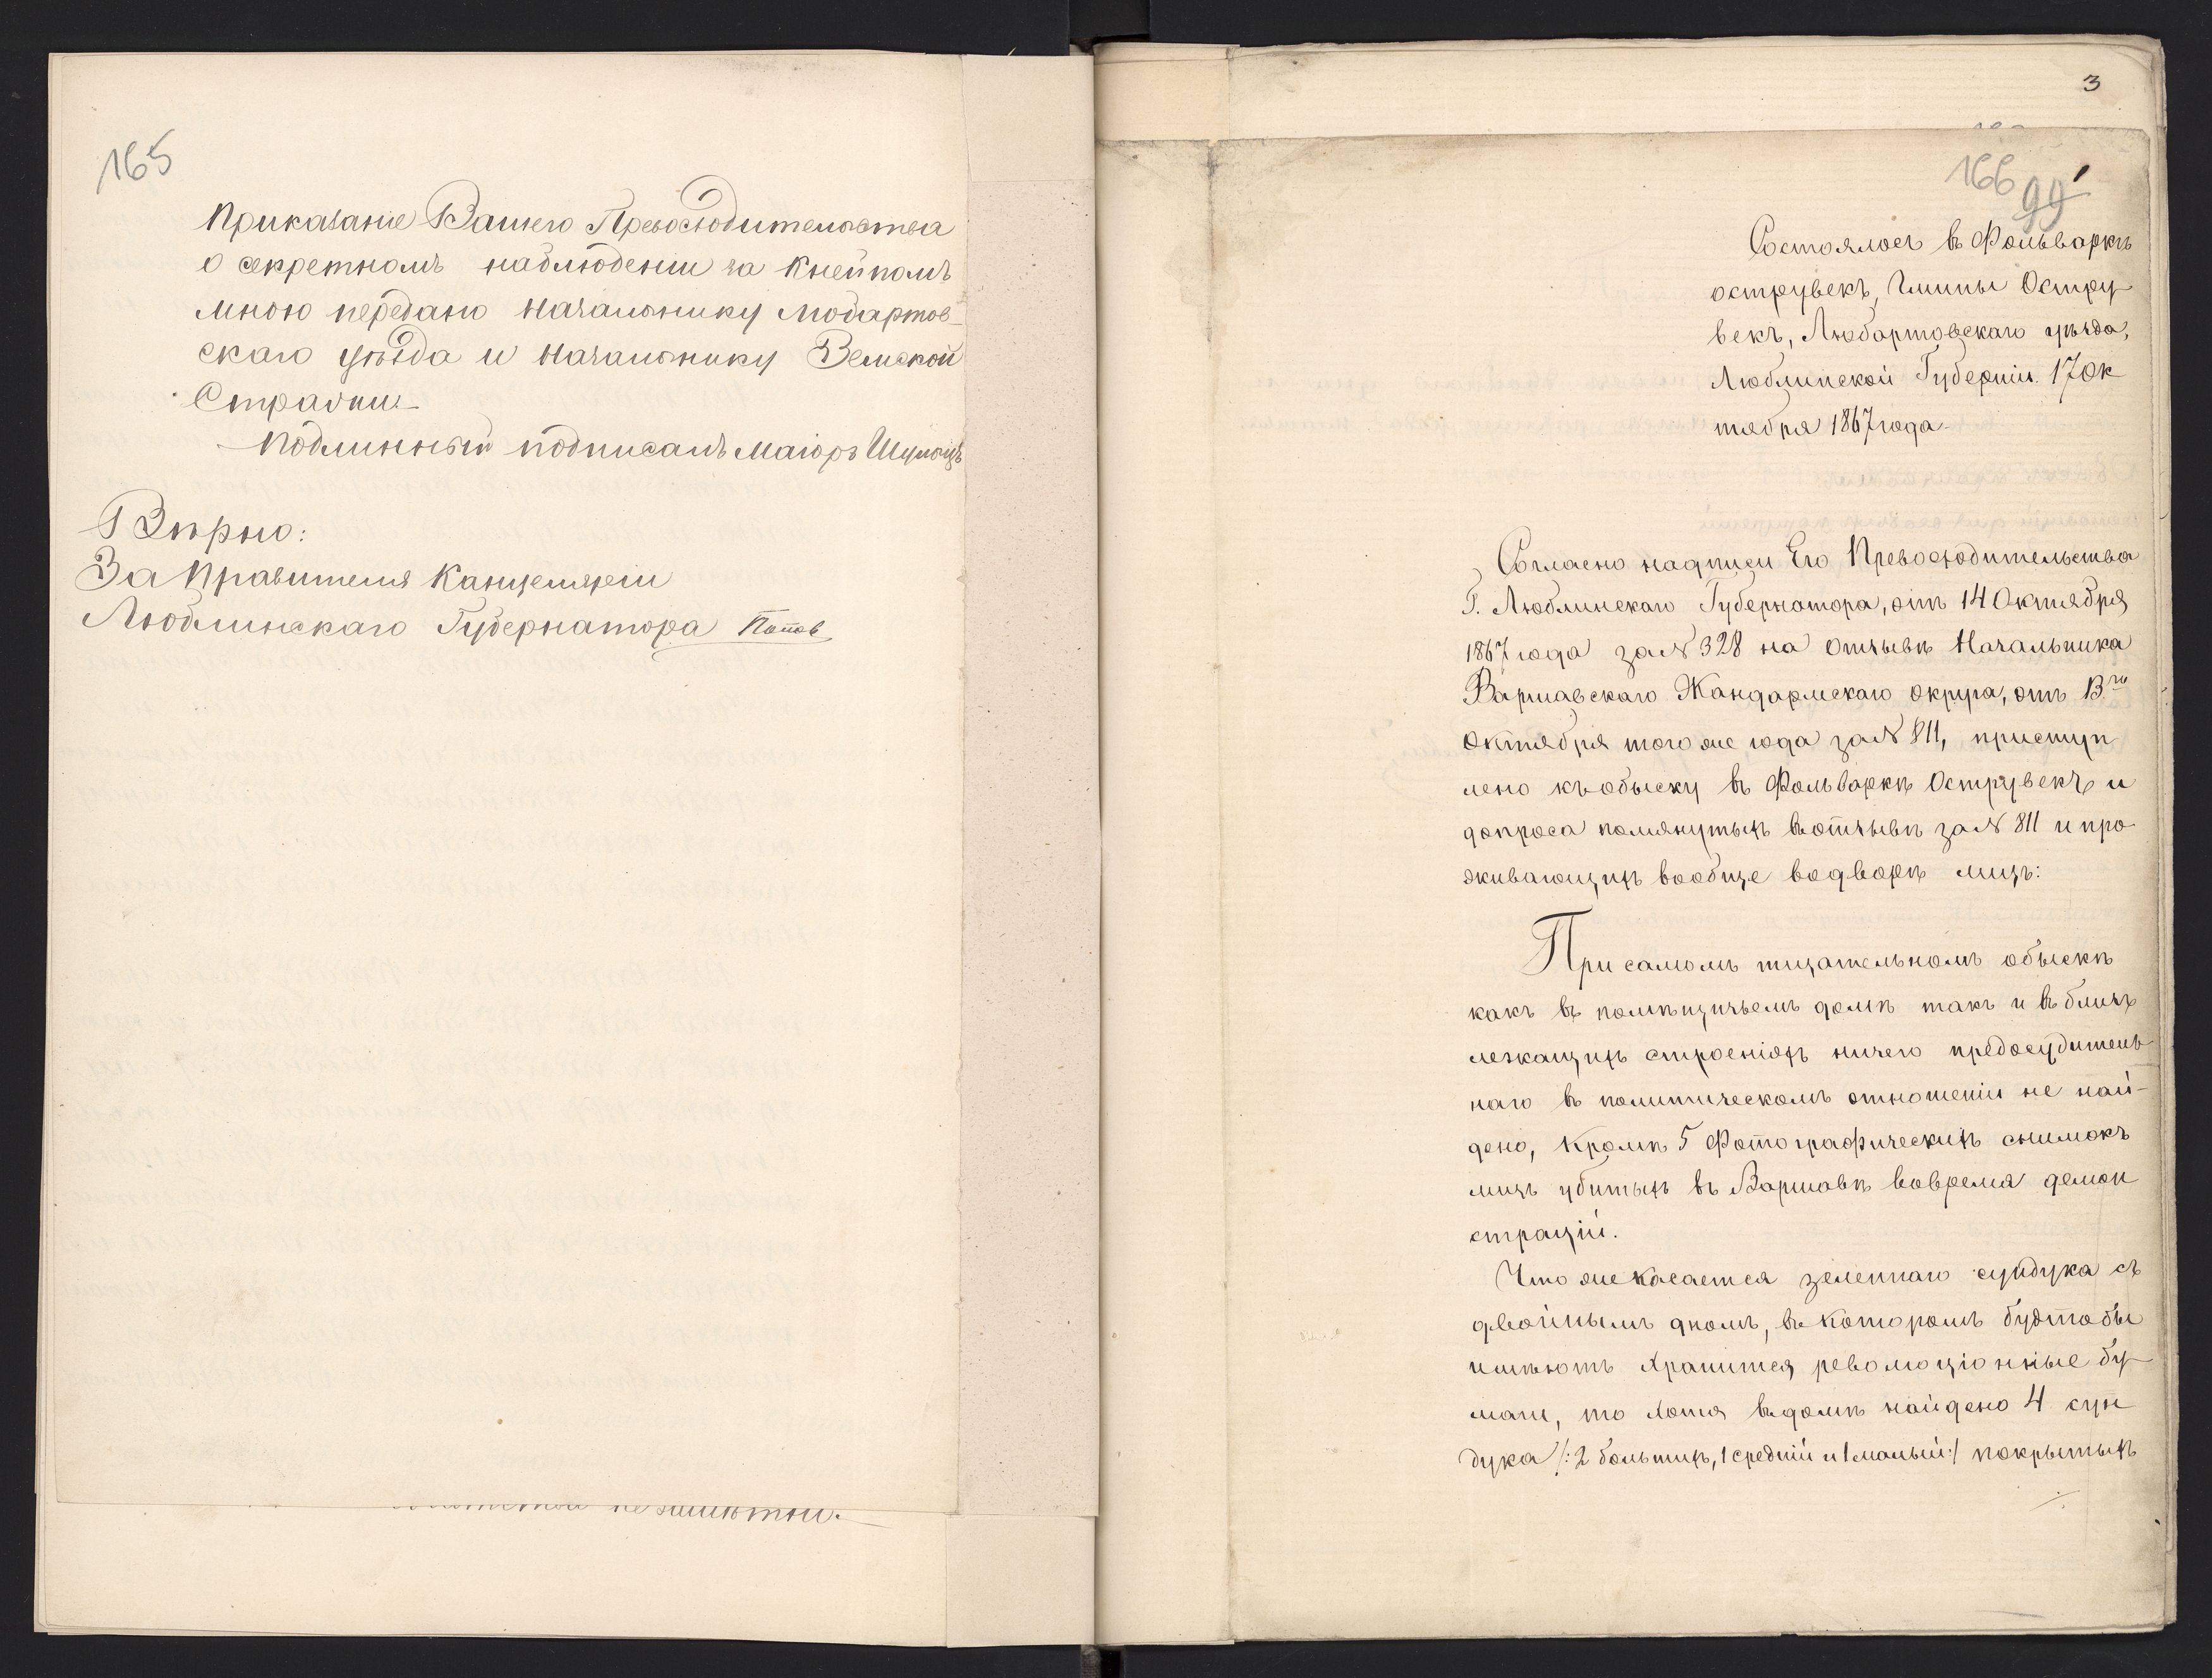 165
Приказаніе Вашего Превосходительства
о секретномъ наблюденіи за Кнейпомъ
мною передано Начальнику Любартов-
скаго уѣзда и Начальнику Земской
Стражи.
Подлинный подписалъ Маіоръ
Вѣрно:
За Правителя Канцеляріи
Люблинскаго Губернатора Попов
не
3
166
99
Состоялось въ Фольваркѣ
острувекъ, Гмины Остру
векъ, Любартовскаго уѣзда,
Люблинской Губерніи. 17 Ок
тября 1867 года.
Согласно надписи Его Превосходительства
Г. Люблинскаго Губернатора, отъ 14 Октября
1867 года за № 328 на отзывѣ Начальника
Варшавскаго Жандармскаго округа, отъ 13го
Октября того же года за № 811, приступ
лено къ обыску въ Фольваркѣ Острувекъ и
допроса помянутыхъ въ отзывѣ за № 811 и про
живающихъ вообще во дворѣ лицъ:
При самомъ тщательномъ обыскѣ
какъ въ помѣщичьемъ домѣ такъ и въ близъ
лежащихъ строеніяхъ ничего предосудитель
наго въ политическомъ отношеніи не най-
дено, Кромѣ 5 Фотографическихъ снимокъ
лицъ убитыхъ въ Варшавѣ вовремя демон
страцій.
Что же касается зеленнаго сундука съ
двойнымъ дномъ, въ Которомъ будтобы
имѣютъ хранится революціонные бу-
маги, то хотя въ домѣ найдено 4 сун
дука /: 2 большихъ, 1 средній и 1 малый :/ покрытыхъ
./.